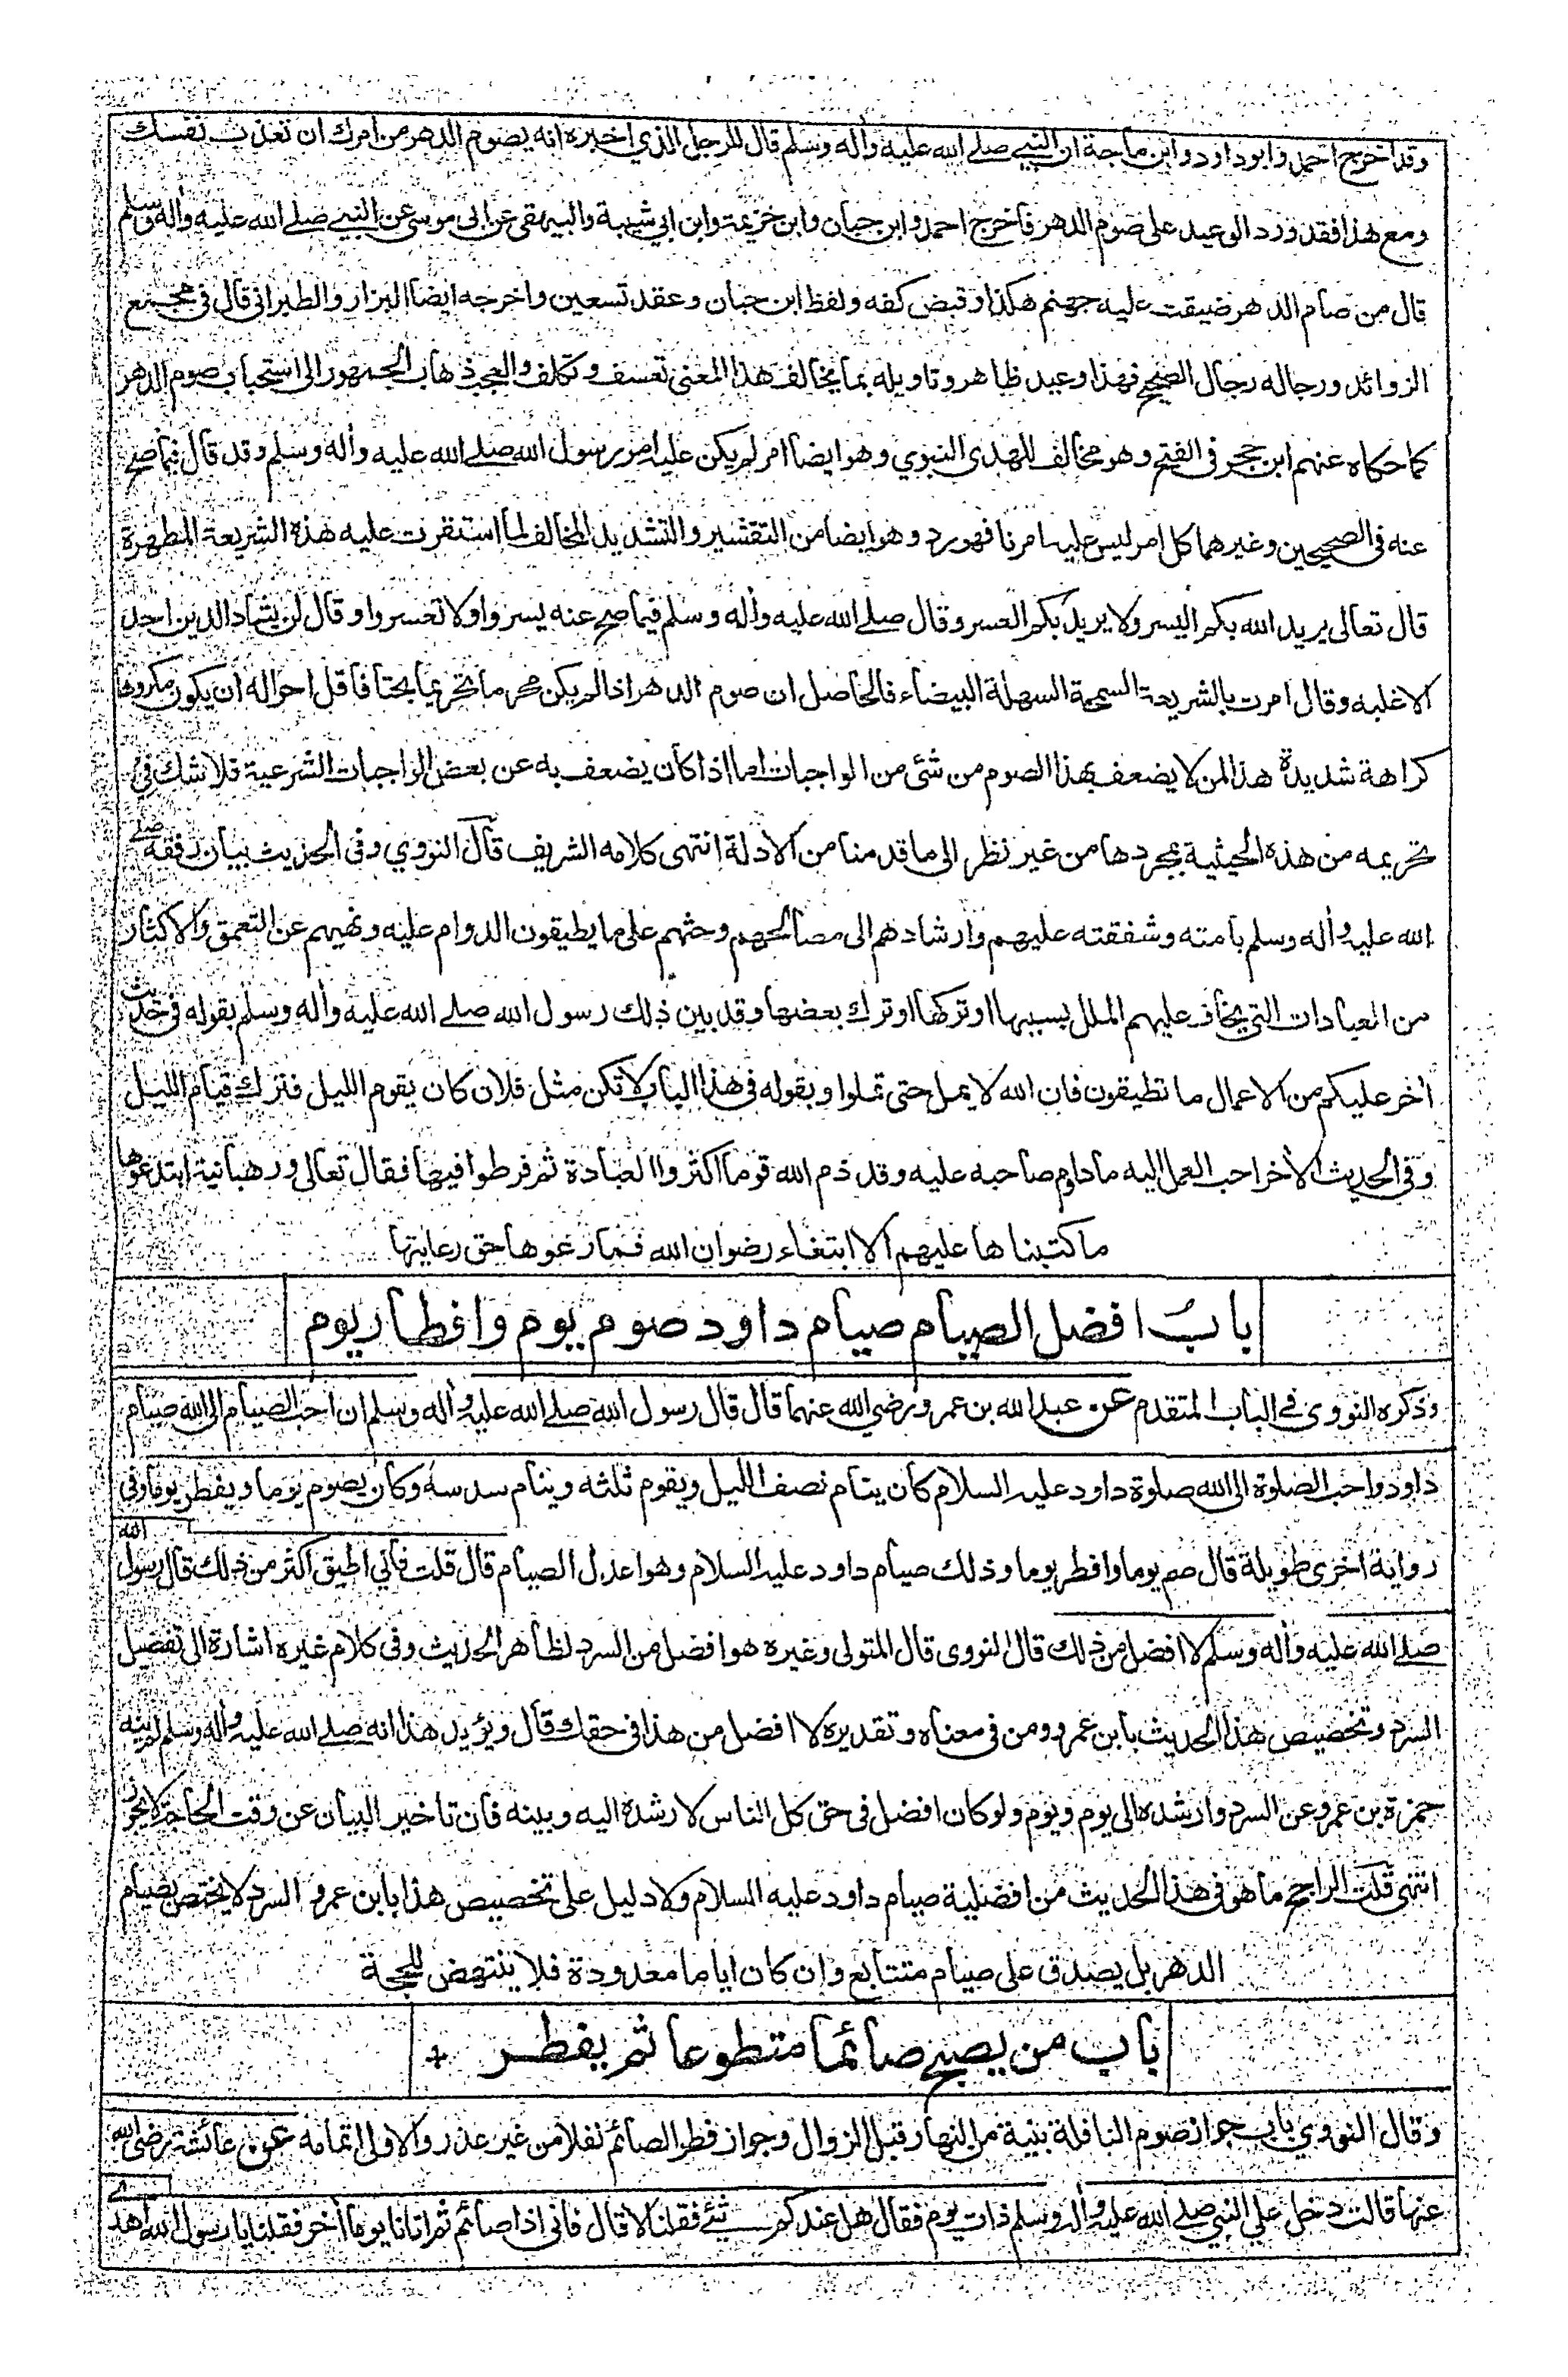 وقد اخرج احمد وابو داود وابن ماجة ان النبي صلے الله عليه وأله وسلم قال للرجل الذي اخبره انه يصوم الدهر من امرك ان تعذب نفسك
ومع هذا فقد ورد الوعيد على صوم الدهر فأخرج احمد وابن حبان وابن خزيمة وابن ابي شيبة والبيهقى عن ابى موسى عن النبي صلے الله عليه وأله وسلم
قال من صام الدهر ضيقت عليه جهنم هكذا وقبض كفه ولفظ ابن حبان وعقد تسعين واخرجه ايضا البزار والطبرانى قال فى مجمع
الزوائد ورجاله رجال الصحيح فهذا وعيد ظاهر وتاويله بما يخالف هذا المعنى تعسف وتكلف والعجب ذهاب الجمهور الى استحباب صوم الدهر
كما حكاه عنهم ابن حجر فى الفتح وهو مخالف للهدى النبوي وهو ايضا امر لم يكن عليه امر رسول الله صلے الله عليه وأله وسلم وقد قال فيما صح
عنه فى الصحيحين وغيرهما كل امر ليس عليه امرنا فهو رد وهو ايضا من التقشير والتشديد المخالف لما استقرت عليه هذه الشريعة المطهرة
قال تعالى يريد الله بكم اليسر ولا يريد بكم العسر وقال صلے الله عليه وأله وسلم فيما صح عنه يسروا ولا تعسروا وقال لن يشاد الدين احد
الا غلبه وقال امرت بالشريعة السمحة السهلة البيضاء فالحاصل ان صوم الدهر اذا لم يكن محرما تحريما بحتا فأقل احواله ان يكون مكروها
كراهة شديدة هذا لمن لا يضعف بهذا الصوم من شئ من الواجبات اما اذا كان يضعف به عن بعض الواجبات الشرعية فلا شك في
تحريمه من هذه الحيثية بمجردها من غير نظر الى ما قدمنا من الادلة انتهى كلامه الشريف قال النووي وفى الحديث بيان رفقه صلے
الله عليه وأله وسلم بامته وشفقته عليهم وارشادهم الى مصالحهم وحثهم على ما يطيقون الدوام عليه ونهيهم عن التعمق والاكثار
من العبادات التي يخاف عليهم الملل بسببها او تركها او ترك بعضها وقد بين ذلك رسول الله صلے الله عليه وأله وسلم بقوله فى حديث
أخر عليكم من الاعمال ما تطيقون فان الله لا يمل حتى تملوا وبقوله فى هذا الباب لا تكن مثل فلان كان يقوم الليل فترك قيام الليل
وفى الحديث الأخر احب العمل اليه ما داوم صاحبه عليه وقد ذم الله قوما اكثروا العبادة ثم فرطوا فيها فقال تعالى ورهبانية ابتدعوها
ما كتبناها عليهم الا ابتغاء رضوان الله فما رعوها حق رعايتها
باب افضل الصيام صيام داود صوم يوم وافطار يوم
وذكره النووى في الباب المتقدم عن عبد الله بن عمرو رضي الله عنهما قال قال رسول الله صلے الله عليه وأله وسلم ان احب الصيام الى الله صيام
داود واحب الصلوة الى الله صلوة داود عليه السلام كان ينام نصف الليل ويقوم ثلثه وينام سدسه وكان يصوم يوما ويفطر يوما وفى
رواية اخرى طويلة قال صم يوما وافطر يوما وذلك صيام داود عليه السلام وهو اعدل الصيام قال قلت فأني اطيق اكثر من ذلك قال رسول الله
صلے الله عليه وأله وسلم لا افضل من ذلك قال النووى قال المتولى وغيره هو افضل من السرد لظاهر الحديث وفى كلام غيره اشارة الى تفضيل
السرد وتخصيص هذا الحديث بابن عمرو ومن فى معناه وتقديره لا افضل من هذا فى حقك قال ويؤيد هذا انه صلے الله عليه وأله وسلم لم ينه
حمزة بن عمرو عن السرد وارشده الى يوم ويوم ولو كان افضل فى حق كل الناس لارشده اليه وبينه فأن تاخير البيان عن وقت الحاجة لا يجوز
انتهى قلت الراجح ما هو فى هذا الحديث من افضلية صيام داود عليه السلام ولا دليل على تخصيص هذا بابن عمرو السرد لا يختص بصيام
الدهر بل يصدق على صيام متتابع وان كان اياما معدودة فلا ينتهض للحجة
باب من يصبح صائما متطوعا ثم يفطر +
وقال النووي باب جواز صوم النافلة بنية من النهار قبل الزوال وجواز فطر الصائم نفلا من غير عذر والاولى اتمامه عن عائشة رضى الله
عنها قالت دخل علي النبي صلے الله عليه وأله وسلم ذات يوم فقال هل عندكم شئے فقلنا لا قال فانى اذا صائم ثم اتانا يوما أخر فقلنا يا رسول الله اهدے